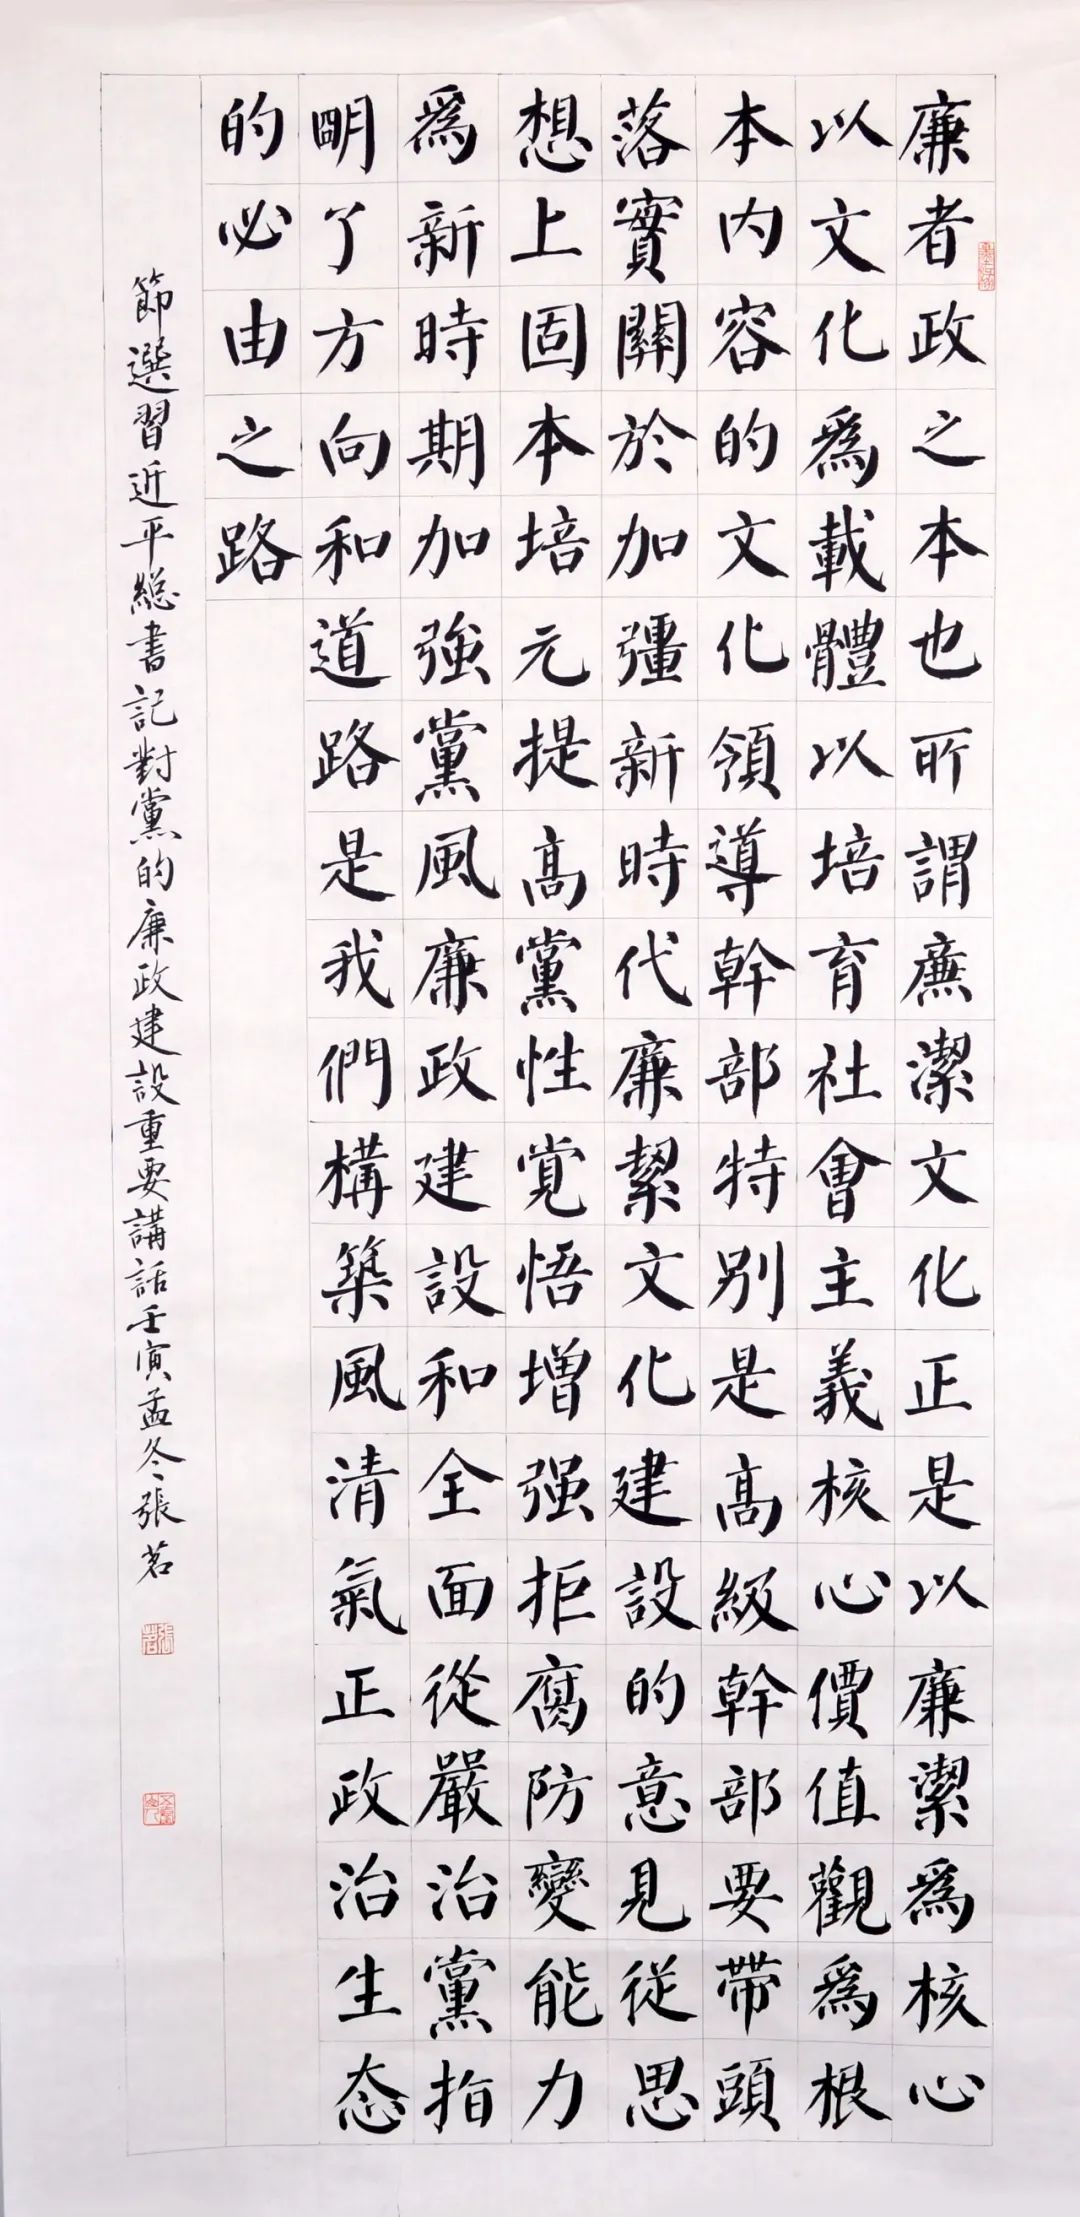 廉者政之本也所謂廉潔文化正是以廉潔爲核心
以文化爲載體以培育社會主義核心價值觀爲根
本内容的文化領導幹部特别是高級幹部要帶頭
落實關於加彊新時代廉絜文化建設的意見從思
想上固本培元提高黨性覚悟增强拒腐防變能力
爲新時期加強黨風廉政建設和全面從嚴治黨指
明了方向和道路是我們構築風清氣正政治生态
的必由之路
節選習近平總書記對黨的廉政建設重要講話壬寅孟冬張茗
張茗